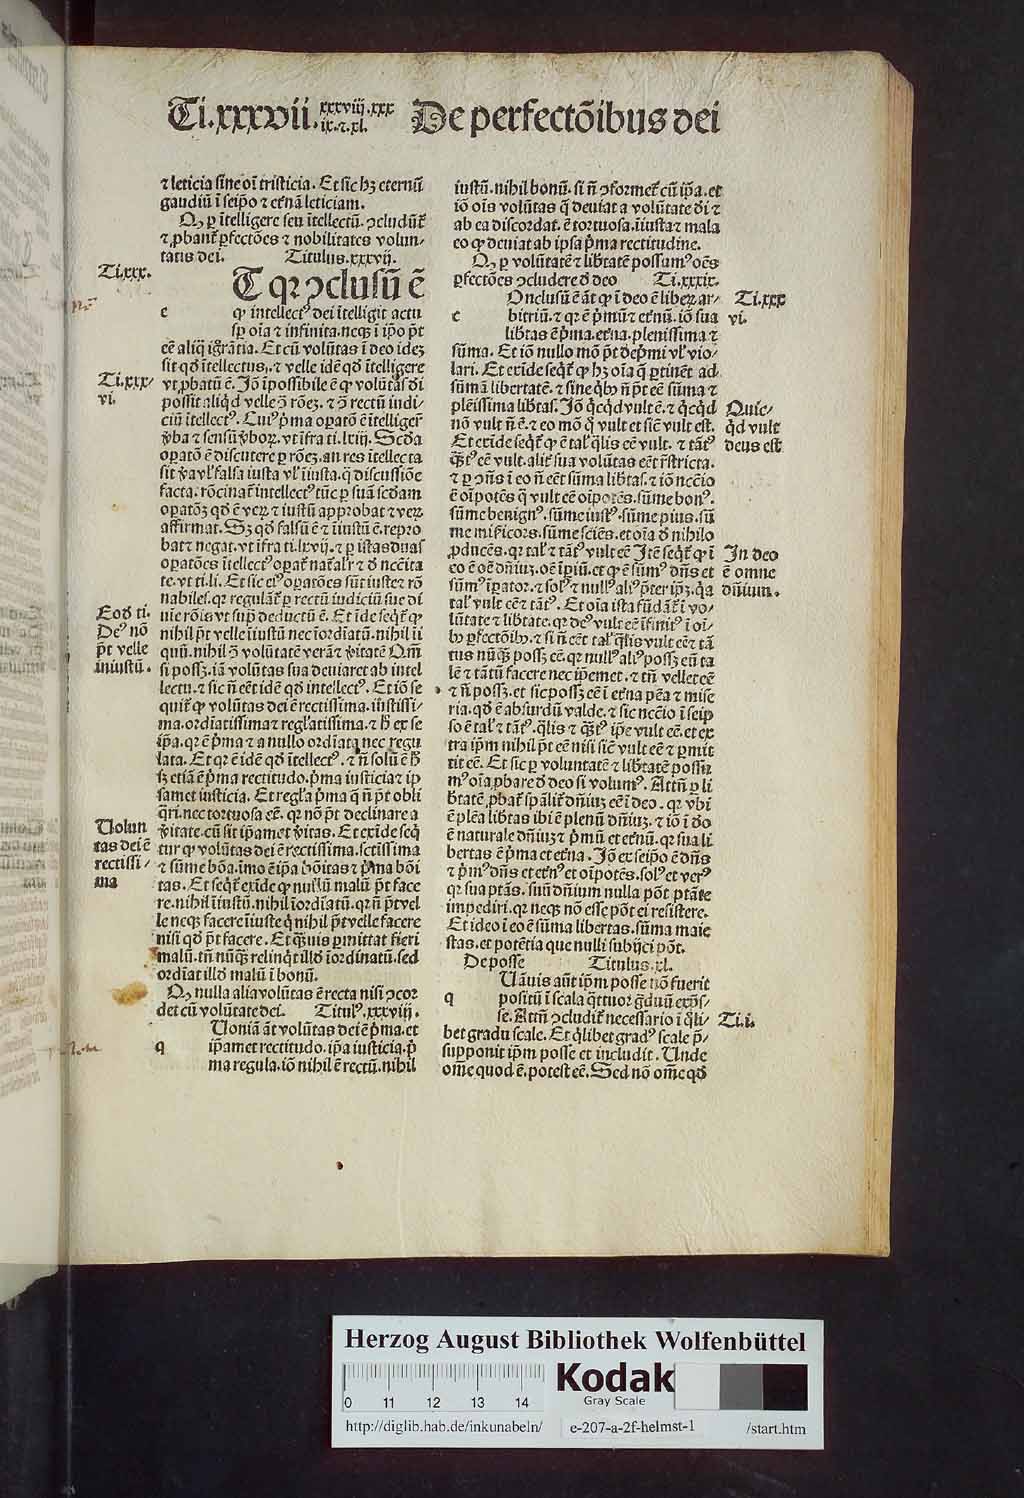 Ti.xxxvii.xxxviij.xxx
ix.⁊.xl. De perfectōibus dei
⁊ leticia sine oī tristicia. Et sic hꝫ eternū
gaudiū ī seipo ⁊ etnā leticiam.
Qꝫ ꝑ ītelligere seu ītellectū. ꝯcludūt
⁊ ꝓbant ꝑfectōes ⁊ nobilitates volun-
tatis dei. Titulus.xxxvij.
Ti.xxx.
T qꝛ ꝯclusū ē
e ꝙ intellect⁹ dei ītelligit actu
sꝑ oīa ⁊ infinita. neqꝫ ī ipō pōt
eē aliq̄ igrātia. Et cū volūtas ī deo ideꝫ
sit qd̄ ītellectus. ⁊ velle idē qd̄ ītelligere
Ti.xxx/
vi.
vt ꝓbatū ē. Iō īpossibile ē ꝙ volūtas di
possit aliqd velle ꝯ rōeꝫ. ⁊ ꝯ rectū iudi-
ciū ītellect⁹. Cui⁹ pma oꝑatō ē ītelliger
v̄ba ⁊ sensū v̄boꝝ. vt īfra ti.lxiij. Scd̄a
oꝑatō ē discutere ꝑ rōeꝫ. an res ītellecta
sit v̄a vl̓ falsa iusta vl̓ īiusta. q̄ discussiōe
facta. rōcinat̄ intellect⁹ tūc ꝑ suā scd̄am
oꝑatōꝫ qd̄ ē veꝝ ⁊ iustū approbat ⁊ veꝝ
affirmat. Sꝫ qd̄ falsū ē ⁊ īiustū ē. repro
bat ⁊ negat. vt īfra ti.lxvij. ⁊ ꝑ istas duas
oꝑatōes ītellect⁹ oꝑat̄ nat̄alr ⁊ d̄ nc̄ēita
te. vt ti.li. Et sic ei⁹ oꝑatōes sūt iuste ⁊ rō
nabiles. qꝛ regulāt̄ ꝑ rectū iudiciū sue di
Eod̄ ti.
De⁹ nō
pt velle
iniustū.
uie rōis vt sup̄ deductū ē. Et īde seqt̄ ꝙ
nihil pt velle īiustū nec īordīatū. nihil īi
quū. nihil ꝯ volūtatē verā ⁊ v̄itatē Qm̄
si possꝫ. iā volūtas sua deuiaret ab intel
lectu. ⁊ sic n̄ eēt idē qd̄ intellect⁹. Et iō se
quit̄ ꝙ volūtas dei ē rectissima. iustissi-
ma. ordīatissima ⁊ regl̓atissima. ⁊ h̄ ex se
ip̄a. qꝛ ē pma ⁊ a nullo ordīata nec regu
lata. Et qꝛ ē idē qd̄ ītellect⁹. ⁊ n̄ solū ē h̄
sꝫ etiā ē pma rectitudo. pma iusticia ⁊ ip
samet iusticia. Et regl̓a pma q̄ n̄ pt obli
q̄ri. nec tortuosa eē. qꝛ nō pt declinare a
Uolun
tas dei ē
rectissi/
ma
v̄itate. cū sit ip̄amet v̄itas. Et exīde seq
tur ꝙ volūtas dei ē rectissima. sctissima
⁊ sūme bōa. imo ē ip̄a bōitas ⁊ pma bōi
tas. Et seqt̄ exīde ꝙ nullū malū pt face
re. nihil īiustū. nihil īordīatū. qꝛ n̄ pt vel
le neqꝫ facere īiuste qꝛ nihil pt velle facere
nisi qd̄ pt facere. Et q̄uis ꝑmittat fieri
malū. tn̄ nūqꝫ relinqt illd̄ īordinatū. sed
ordīat illd̄ malū ī bonū.
Qꝫ nulla alia volūtas ē recta nisi ꝯcor
det cū volūtate dei. Titul⁹.xxxviij.
Uoniā āt volūtas dei ē pma. et
q ip̄amet rectitudo. ip̄a iusticia. p
ma regula. iō nihil ē rectū. nihil
iustū. nihil bonū. si n̄ ꝯformet̄ cū ip̄a. et
iō oīs volūtas q̄ deuiat a volūtate di ⁊
ab ea discordat. ē tortuosa. īiusta ⁊ mala
eo ꝙ deuiat ab ipsa pma rectitudine.
Qꝫ ꝑ volūtatē ⁊ libtatē possum⁹ oēs
ꝑfectōes ꝯcludere d̄ deo Ti.xxxix.
Onclusū ē āt ꝙ ī deo ē libeꝝ ar-
Ti.xxx
vi.
c bitriū. ⁊ qꝛ ē pmū ⁊ etnū. iō sua
libtas ē pma. etna. plenissima ⁊
sūma. Et iō nullo mō pt depmi vl̓ vio-
lari. Et exīde seqt̄ ꝙ hꝫ oīa q̄ ꝑtinēt ad
sūmā libertatē. ⁊ sine qbꝫ n̄ pt eē sūma ⁊
Quic/
qd vult
deus est
plēissima libtas. Iō qcqd vult ē. ⁊ qcqd
nō vult n̄ ē. ⁊ eo mō ꝙ vult et sic vult est.
Et exīde seqt̄ ꝙ ē tal̓ qlis eē vult. ⁊ tāt⁹
q̄t⁹ eē vult. alit̄ sua volūtas eēt r̄stricta.
⁊ ꝑ ꝯn̄s ī eo n̄ eēt sūma libtas. ⁊ iō nc̄ēio
ē oīpotēs q̄ vult eē oīpotēs. sūme bon⁹.
sūme benign⁹. sūme iust⁹. sūme pius. sū
me misicors. sūme sciēs. et oīa d̄ nihilo
In deo
ē omne
dn̄ium.
ꝓducēs. qꝛ tal̓ ⁊ tāt⁹ vult eē Itē seqt̄ ꝙ ī
eo ē oē dn̄iuꝫ. oē īꝑiū. et ꝙ ē sūm⁹ dn̄s et
sūm⁹ īꝑator. ⁊ sol⁹ ⁊ null⁹ ali⁹ pter ipꝫ. qa
tal̓ vult eē ⁊ tāt⁹. Et oīa ista fūdāt̄ ī vo/
lūtate ⁊ libtate. qꝛ de⁹ vult eē īfinit⁹ ī oī-
bꝫ ꝑfectōibꝫ. ⁊ si n̄ eēt tal̓ qlis vult eē ⁊ tā
tus nūqꝫ possꝫ eē. qꝛ null⁹ ali⁹ possꝫ eū ta
lē ⁊ tātū facere nec ipemet. ⁊ tn̄ vellet eē
⁊ n̄ possꝫ. et sic possꝫ eē ī etna pēa ⁊ mise
ria. qd̄ ē absurdū valde. ⁊ sic nc̄ēio ī seip
so ē tal̓ ⁊ tāt⁹. qlis ⁊ q̄t⁹ ipe vult eē. et ex
tra ip̄m nihil pt eē nisi sic vult eē ⁊ ꝑmit
tit eē. Et sic ꝑ voluntatē ⁊ libtatē possu
m⁹ oīa ꝓbare d̄ deo si volum⁹. Attn̄ ꝑ li
btatē ꝓbat̄ spālit̄ dn̄iuꝫ eē ī deo. qꝛ vbi
ē plēa libtas ibi ē plenū dn̄iuꝫ. ⁊ iō ī do
ē naturale dn̄iuꝫ ⁊ pmū et etnū. qꝛ sua li
bertas ē pma et etna. Iō ex seipō ē dn̄s
⁊ pm⁹ dn̄s et etn⁹ et oīpotēs. sol⁹ et ver⁹
qꝛ sua ptās. suū dn̄ium nulla pōt ptāte
impediri. qꝛ neqꝫ nō esse pōt ei resistere.
Et ideo ī eo ē sūma libertas. sūma maie
stas. et potētia que nulli subijci pōt.
De posse Titulus.xl.
Uāuis aūt ip̄m posse nō fuerit
q positū ī scala q̄ttuor gduū exps/
Ti.i.
se. Attn̄ ꝯcludit̄ necessario ī qli/
bet gradu scale. Et qlibet grad⁹ scale p̄/
supponit ip̄m posse et includit. Unde
om̄e quod ē. potest eē. Sed nō om̄e qd̄
Herzog August Bibliothek Wolfenbüttel
0 11 12 13 14
Kodak
Gray Scale
http://diglib.hab.de/inkunabeln/ e-207-a-2f-helmst-1 /start.htm